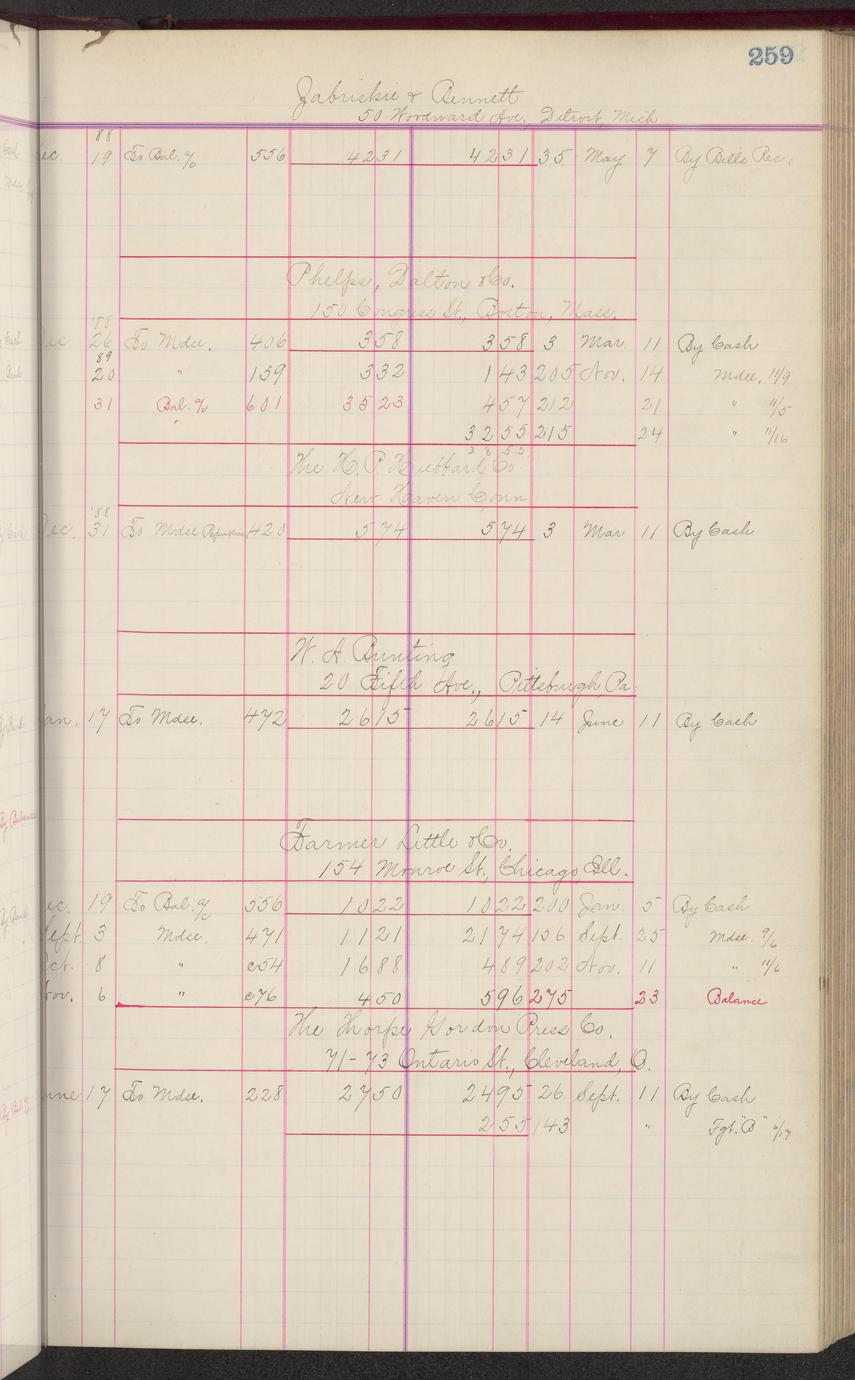 259
Zabriskie & Bennett
50 Woodward Ave, Detroit, Mich
88
ec 19 To Bal. % 556 4231 4231 35 May 7 By Bills Rec.
Phelps, Dalton & Co.
150 Congress St., Boston, Mass.
'88
Dec 26 To Mdse. 406 358 358 3 Mar. 11 By Cash
89
20 " 159 332 143 205 Nov. 14 Mdse, 11/9
31 Bal. % 601 3523 457 212 21 " 11/5
" 3255 215 24 " 11/16
The H. P. Hubbard Co.
New Haven Conn
'88
Dec. 31 To Mdse 420 574 574 3 Mar 11 By Cash
W. A. Bunting
20 Fifth Ave., Pittsburgh, Pa.
an. 17 To Mdse. 472 2615 2615 14 June 11 By Cash
Farmer Little & Co.
154 Monroe St., Chicago, Ill.
ec. 19 To Bal. % 556 1022 1022 200 Jan. 5 By Cash
Sept. 3 Mdse. 471 1121 2174 156 Sept. 25 Mdse. 9/6
ct. 8 " c54 1688 489 202 Nov. 11 " 11/6
ov. 6 " c76 450 596 275 23 Balance
The Thorpe Gordon Press Co.
71-73 Ontario St., Cleveland, O.
une 17 To Mdse. 228 2750 2495 26 Sept. 11 By Cash
255 143 " Fgt. "B" 6/17